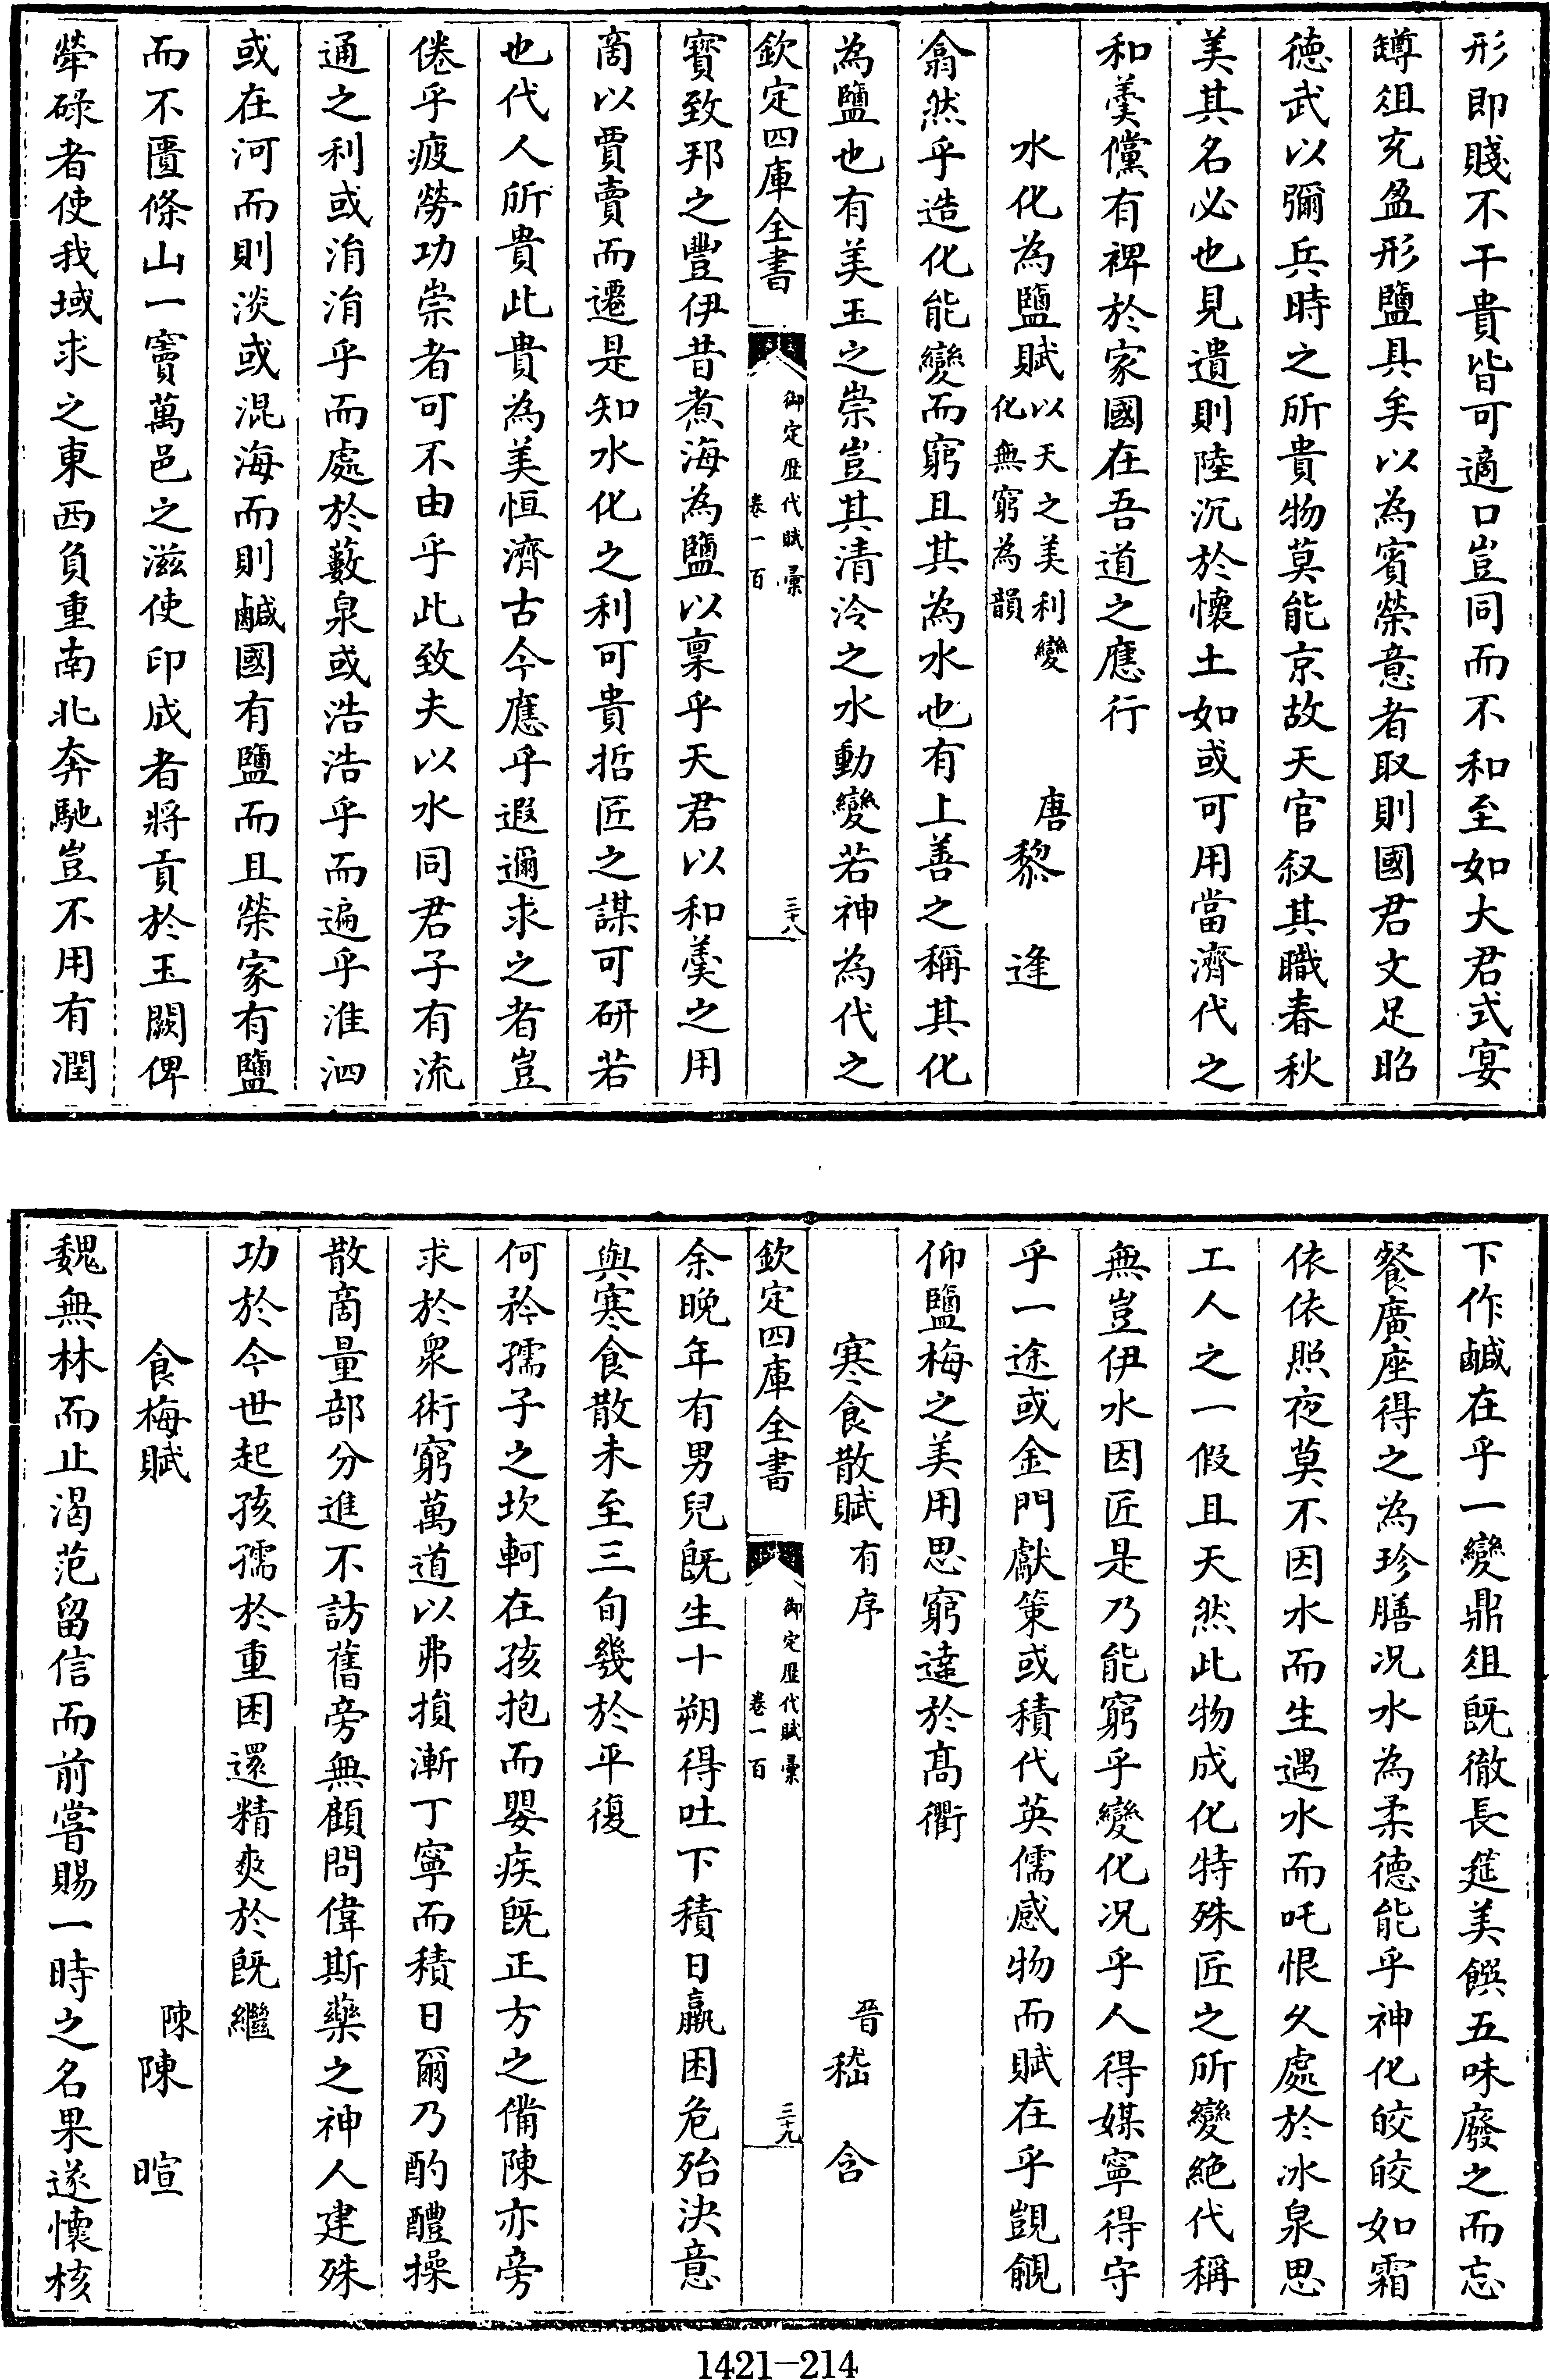 形即賤不干貴皆可適口豈同而不和至如大君式宴
罇俎充盈形鹽具矣以為賓榮意者取則國君文足昭
德武以彌兵時之所貴物莫能京故天官叙其職春秋
美其名必也見遺則陸沉於懷土如或可用當濟代之
和羮儻有裨於家國在吾道之應行
水化為鹽賦以天之美利變化無窮為韻 唐黎逢
翕然乎造化能變而窮且其為水也有上善之稱其化
為鹽也有美玉之崇豈其清泠之水動變若神為代之
欽定四庫全書 御定歷代賦彙 卷一百 三十八
寳致邦之豐伊昔煮海為鹽以稟乎天君以和羮之用
啇以賈賣而遷是知水化之利可貴哲匠之謀可研若
也代人所貴此貴為美恒濟古今應乎遐邇求之者豈
倦乎疲勞功崇者可不由乎此致夫以水同君子有流
通之利或涓涓乎而處於藪泉或浩浩乎而遍乎淮泗
或在河而則淡或混海而則鹹國有鹽而且榮家有鹽
而不匱條山一竇萬邑之滋使印成者將貢於玉闕俾
犖碌者使我域求之東西負重南北奔馳豈不用有潤
下作鹹在乎一變鼎俎既徹長筵美饌五味廢之而忘
餐廣座得之為珍膳况水為柔德能乎神化皎皎如霜
依依照夜莫不因水而生遇水而吒恨久處於冰泉思
工人之一假且天然此物成化特殊匠之所變絶代稱
無豈伊水因匠是乃能窮乎變化况乎人得媒寧得守
乎一途或金門獻策或積代英儒感物而賦在乎覬覦
仰鹽梅之美用思窮達於髙衢
寒食散賦有序 晉嵇含
欽定四庫全書 御定歷代賦彙 卷一百 三十九
余晚年有男兒既生十朔得吐下積日羸困危殆決意
與寒食散未至三旬幾於平復
何矜孺子之坎軻在孩抱而嬰疾既正方之備陳亦旁
求於衆術窮萬道以弗損漸丁寧而積日爾乃酌醴操
散啇量部分進不訪舊旁無顧問偉斯藥之神人建殊
功於今世起孩孺於重困還精爽於既繼
食梅賦 陳陳暄
魏無林而止渴范留信而前嘗賜一時之名果遂懷核
1421—214